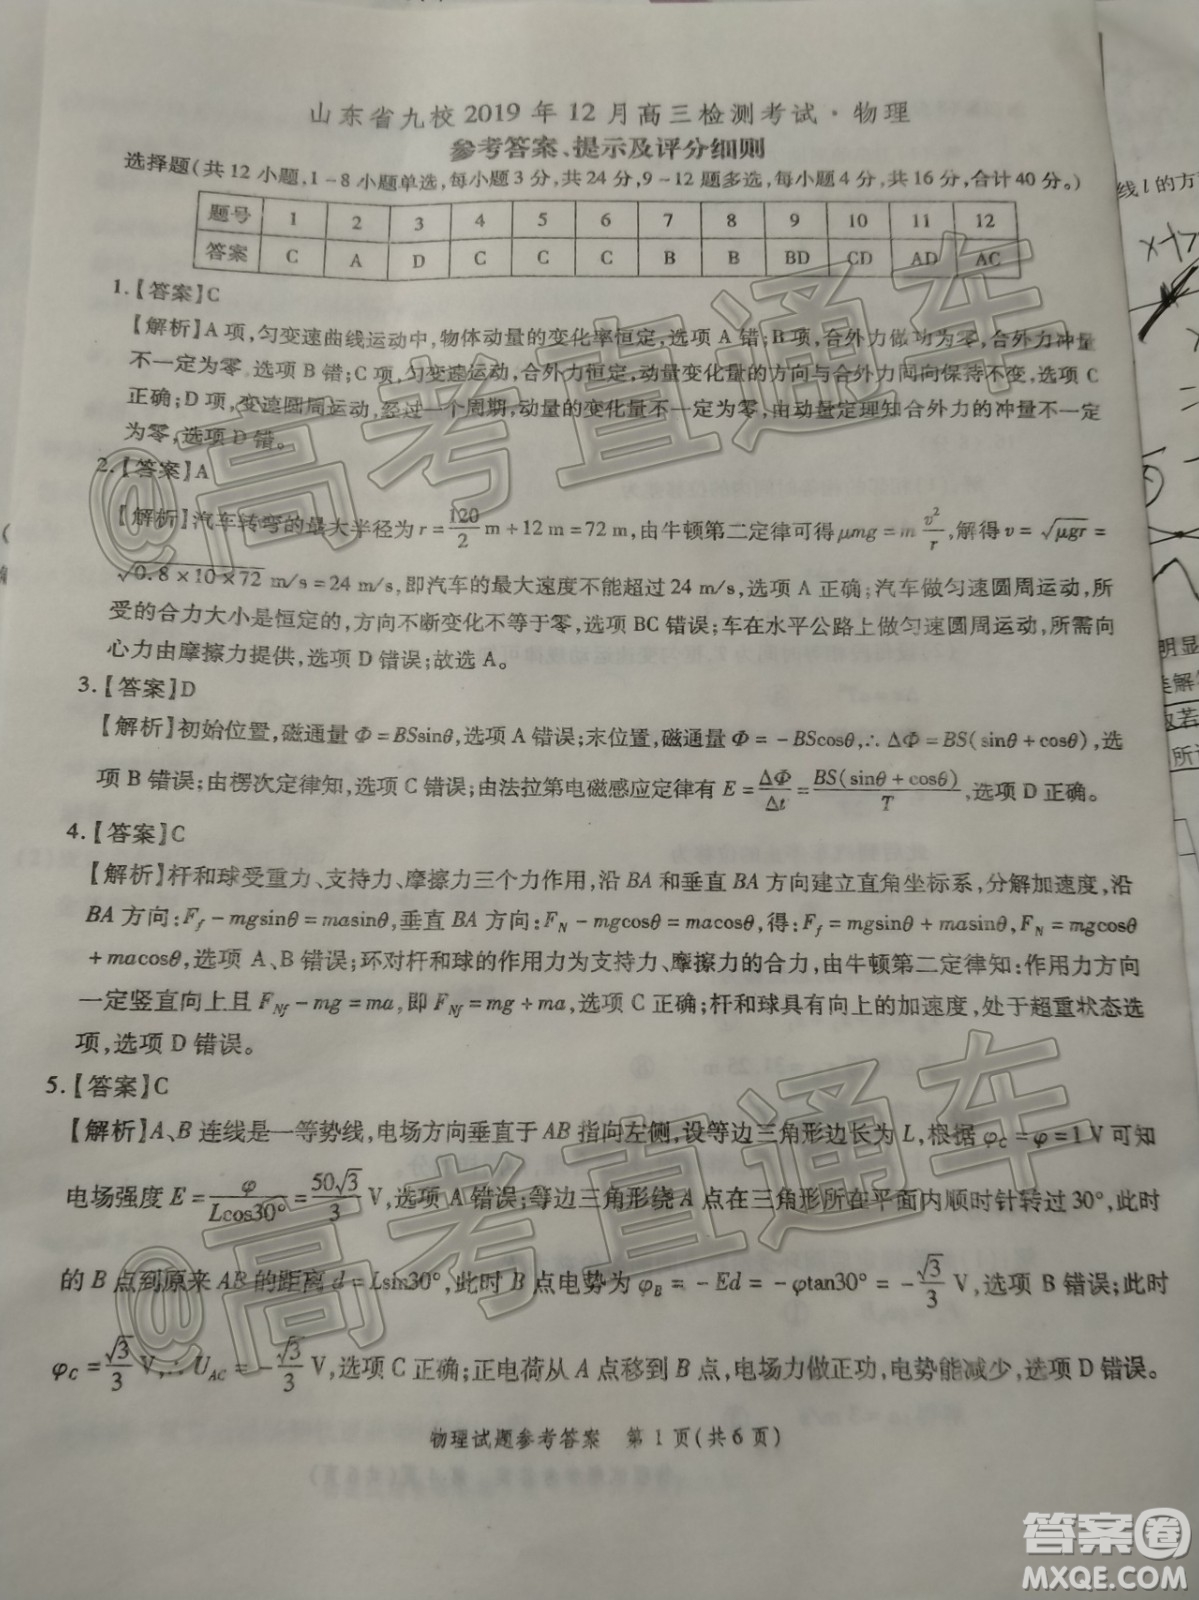 山东省九校2019年12月高三检测考试·物理
参考答案、提示及评分细则
选择题(共12小题,1-8小题单选,每小题3分,共24分,9-12题多选,每小题4分,共16分,合计40分。)
题号 1 2 3 4 5 6 7 8 9 10 11 12
答案 C A D C C C B B BD CD AD AC
1.【答案】C
【解析】A项,匀变速曲线运动中,物体动量的变化率恒定,选项A错;B项,合外力做功为零,合外力冲量
不一定为零,选项B错;C项,匀变速运动,合外力恒定,动量变化量的方向与合外力方向保持不变,选项C
正确;D项,变速圆周运动,经过一个周期,动量的变化量不一定为零,由动量定理知合外力的冲量不一定
为零,选项D错。
2.【答案】A
【解析】汽车转弯的最大半径为r=120/2 m+12 m=72 m,由牛顿第二定律可得μmg=m v²/r,解得v=√μgr=
√0.8×10×72 m/s=24 m/s,即汽车的最大速度不能超过24 m/s,选项A正确;汽车做匀速圆周运动,所
受的合力大小是恒定的,方向不断变化不等于零,选项BC错误;车在水平公路上做匀速圆周运动,所需向
心力由摩擦力提供,选项D错误;故选A。
3.【答案】D
【解析】初始位置,磁通量Φ=BSsinθ,选项A错误;末位置,磁通量Φ=-BScosθ,∴ΔΦ=BS(sinθ+cosθ),选
项B错误;由楞次定律知,选项C错误;由法拉第电磁感应定律有E=ΔΦ/Δt=BS(sinθ+cosθ)/T,选项D正确。
4.【答案】C
【解析】杆和球受重力、支持力、摩擦力三个力作用,沿BA和垂直BA方向建立直角坐标系,分解加速度,沿
BA方向:F_f-mgsinθ=masinθ,垂直BA方向:F_N-mgcosθ=macosθ,得:F_f=mgsinθ+masinθ,F_N=mgcosθ
+macosθ,选项A、B错误;环对杆和球的作用力为支持力、摩擦力的合力,由牛顿第二定律知:作用力方向
一定竖直向上且F_Nf-mg=ma,即F_Nf=mg+ma,选项C正确;杆和球具有向上的加速度,处于超重状态选
项,选项D错误。
5.【答案】C
【解析】A、B连线是一等势线,电场方向垂直于AB指向左侧,设等边三角形边长为L,根据φ_C=φ=1 V可知
电场强度E=φ/Lcos30°=50√3/3 V,选项A错误;等边三角形绕A点在三角形所在平面内顺时针转过30°,此时
的B点到原来AB的距离d=Lsin30°,此时B点电势为φ_B=-Ed=-φtan30°=-√3/3 V,选项B错误;此时
φ_C=√3/3 V,∴U_AC=-√3/3 V,选项C正确;正电荷从A点移到B点,电场力做正功,电势能减少,选项D错误。
物理试题参考答案 第1页(共6页)
@高考直通车
@高考直通车
答案圈
MXQE.COM
线l的方
明显
所